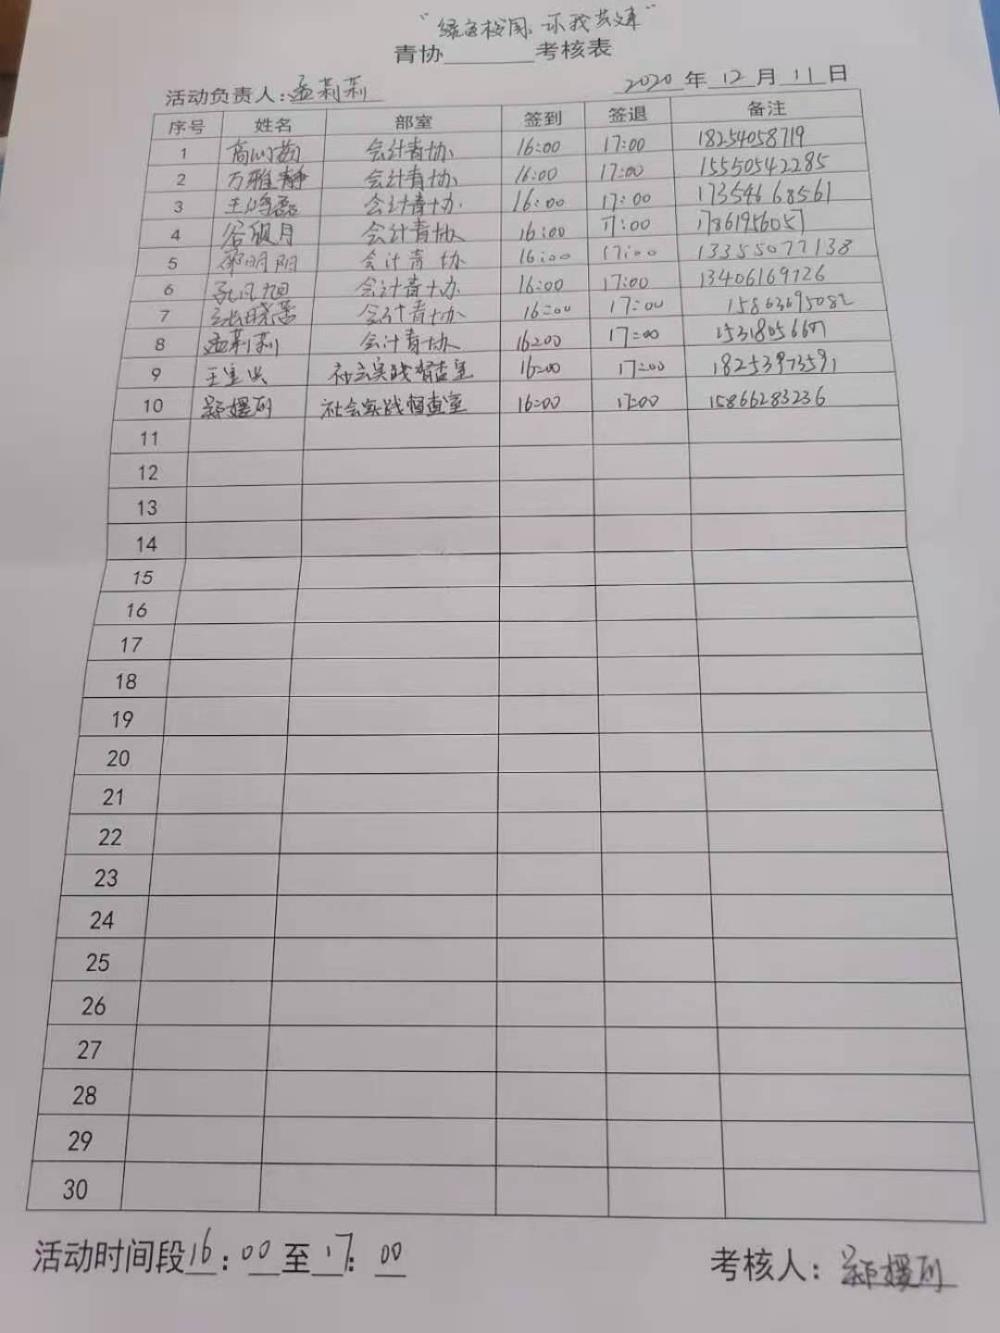 "绿色校园,
青协______考核表
活动负责人:孟莉莉 2020年12月11日
序号 姓名 部室 签到 签退 备注
1 会计青协 16:00 17:00 18254058719
2 万雅静 会计青协 16:00 17:00 15550542285
3 会计青协 16:00 17:00 17354668561
4 会计青协 16:00 17:00 17861956057
5 会计青协 16:00 17:00 13355077138
6 会计青协 16:00 17:00
7 会计青协 16:00 17:00 15863695082
8 孟莉莉 会计青协 16:00 17:00
9 社会实践督查室 16:00 17:00 18253973591
10 郑媛 社会实践督查室 16:00 17:00 15866283236
11
12
13
14
15
16
17
18
19
20
21
22
23
24
25
26
27
28
29
30
活动时间段16:00至17:00 考核人:郑媛